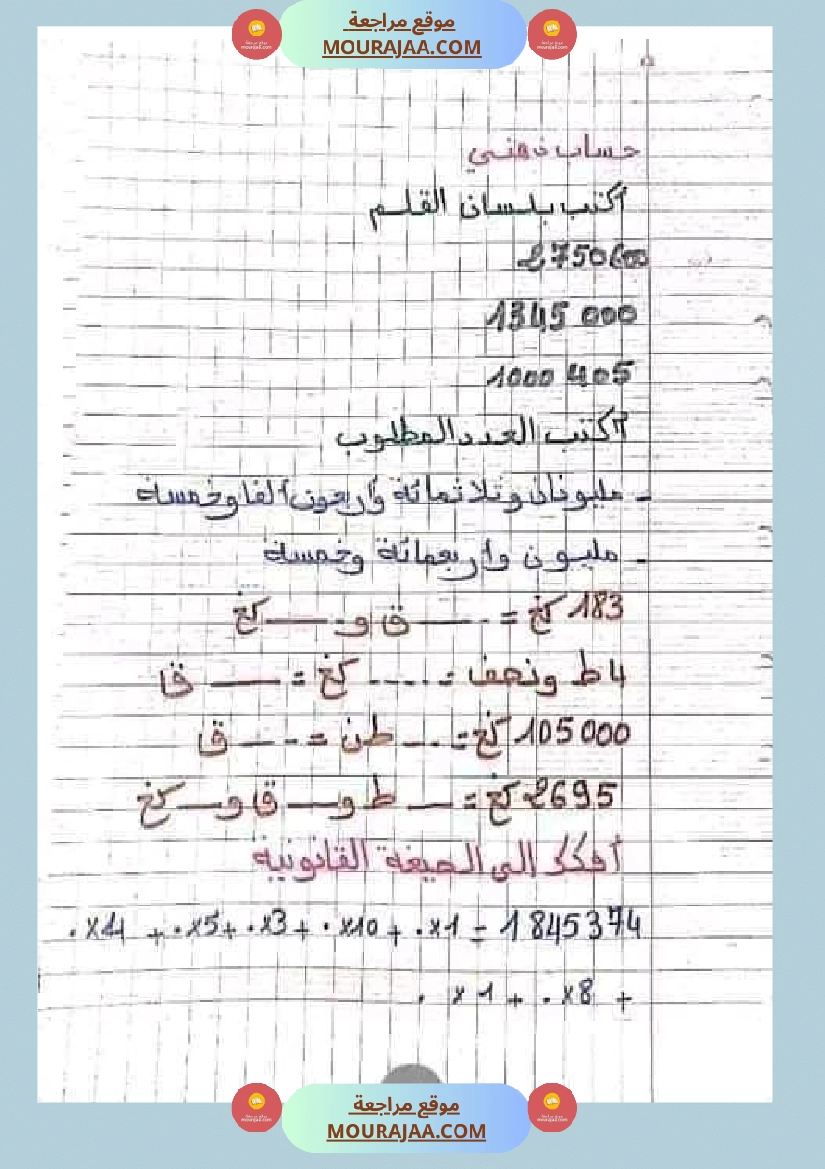 موقع مراجعة
MOURAJAA.COM
حساب ذهني
اكتب بلسان القلم
2750600
1345 000
1000 405
اكتب العدد المطلوب
- مليونان وثلاثمائة وأربعون ألفا وخمسة
- مليون واربعمائة وخمسة
183 كغ = ---- ق و ---- كغ
4 ط ونصف = ---- كغ = ---- ق
105 000 كغ = --- طن = --- ق
2695 كغ = --- ط و --- ق و --- كغ
أفكك إلى الصيغة القانونية
1845374 = 1×. + 10×. + 3×. + 5×. + 4×.
+ 8×. + 1×.
موقع مراجعة
MOURAJAA.COM